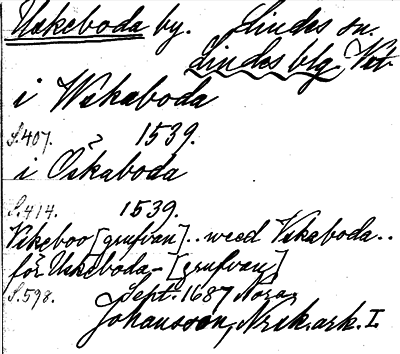 Uskeboda by. Lindes sn.
Lindes blg, Vst.
i Wskaboda
S. 407. 1539.
i Oskaboda
S. 414. 1539.
Vskeboo [grufvan] .. weed Vskaboda ..
för Uskeboda - [grufvan]
S. 598. Sept. 1687 Nora,
Johansson, Nrzk. ark. I